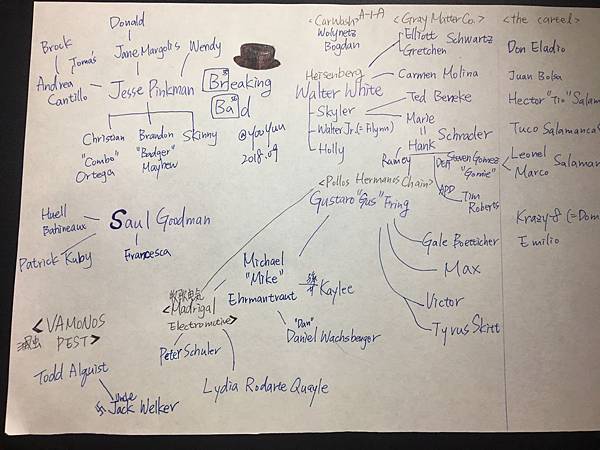 Donald
Brock
Tomás
Jane Margolis
Wendy
Andrea
Cantillo
Jesse Pinkman
Christian
"Combo"
Ortega
Brandon
"Badger"
Mayhew
Skinny
Breaking
35
Bad
56
@youyuu
2018.09
<Car Wash> A-1-A
Wolynetz
Bogdan
<Gray Matter Co.>
Elliott
Gretchen
Schwartz
Heisenberg
Walter White
Carmen Molina
Skyler
Ted Beneke
Walter Jr. (= Flynn)
Marie
=
Hank
Schrader
Holly
Ramey
DEA
Steven Gomez
"Gomie"
APD
Tim
Roberts
<the cartel>
Don Eladio
Juan Bolsa
Hector "Tio" Salama
Tuco Salamanca
Leonel
Marco
Salaman
Krazy-8 (=Dom
Emilio
Huell
Babineaux
Saul Goodman
Patrick Kuby
Francesca
<Pollos Hermanos Chain>
Gustavo "Gus" Fring
Gale Boetticher
Max
Victor
Tyrus Skitt
Michael
"Mike"
Ehrmantraut
Kaylee
"Dan"
Daniel Wachsberger
<Madrigal
Electromotive>
Peter Schuler
Lydia Rodarte Quayle
<VAMONOS
PEST>
Todd Alquist
Uncle
Jack Welker